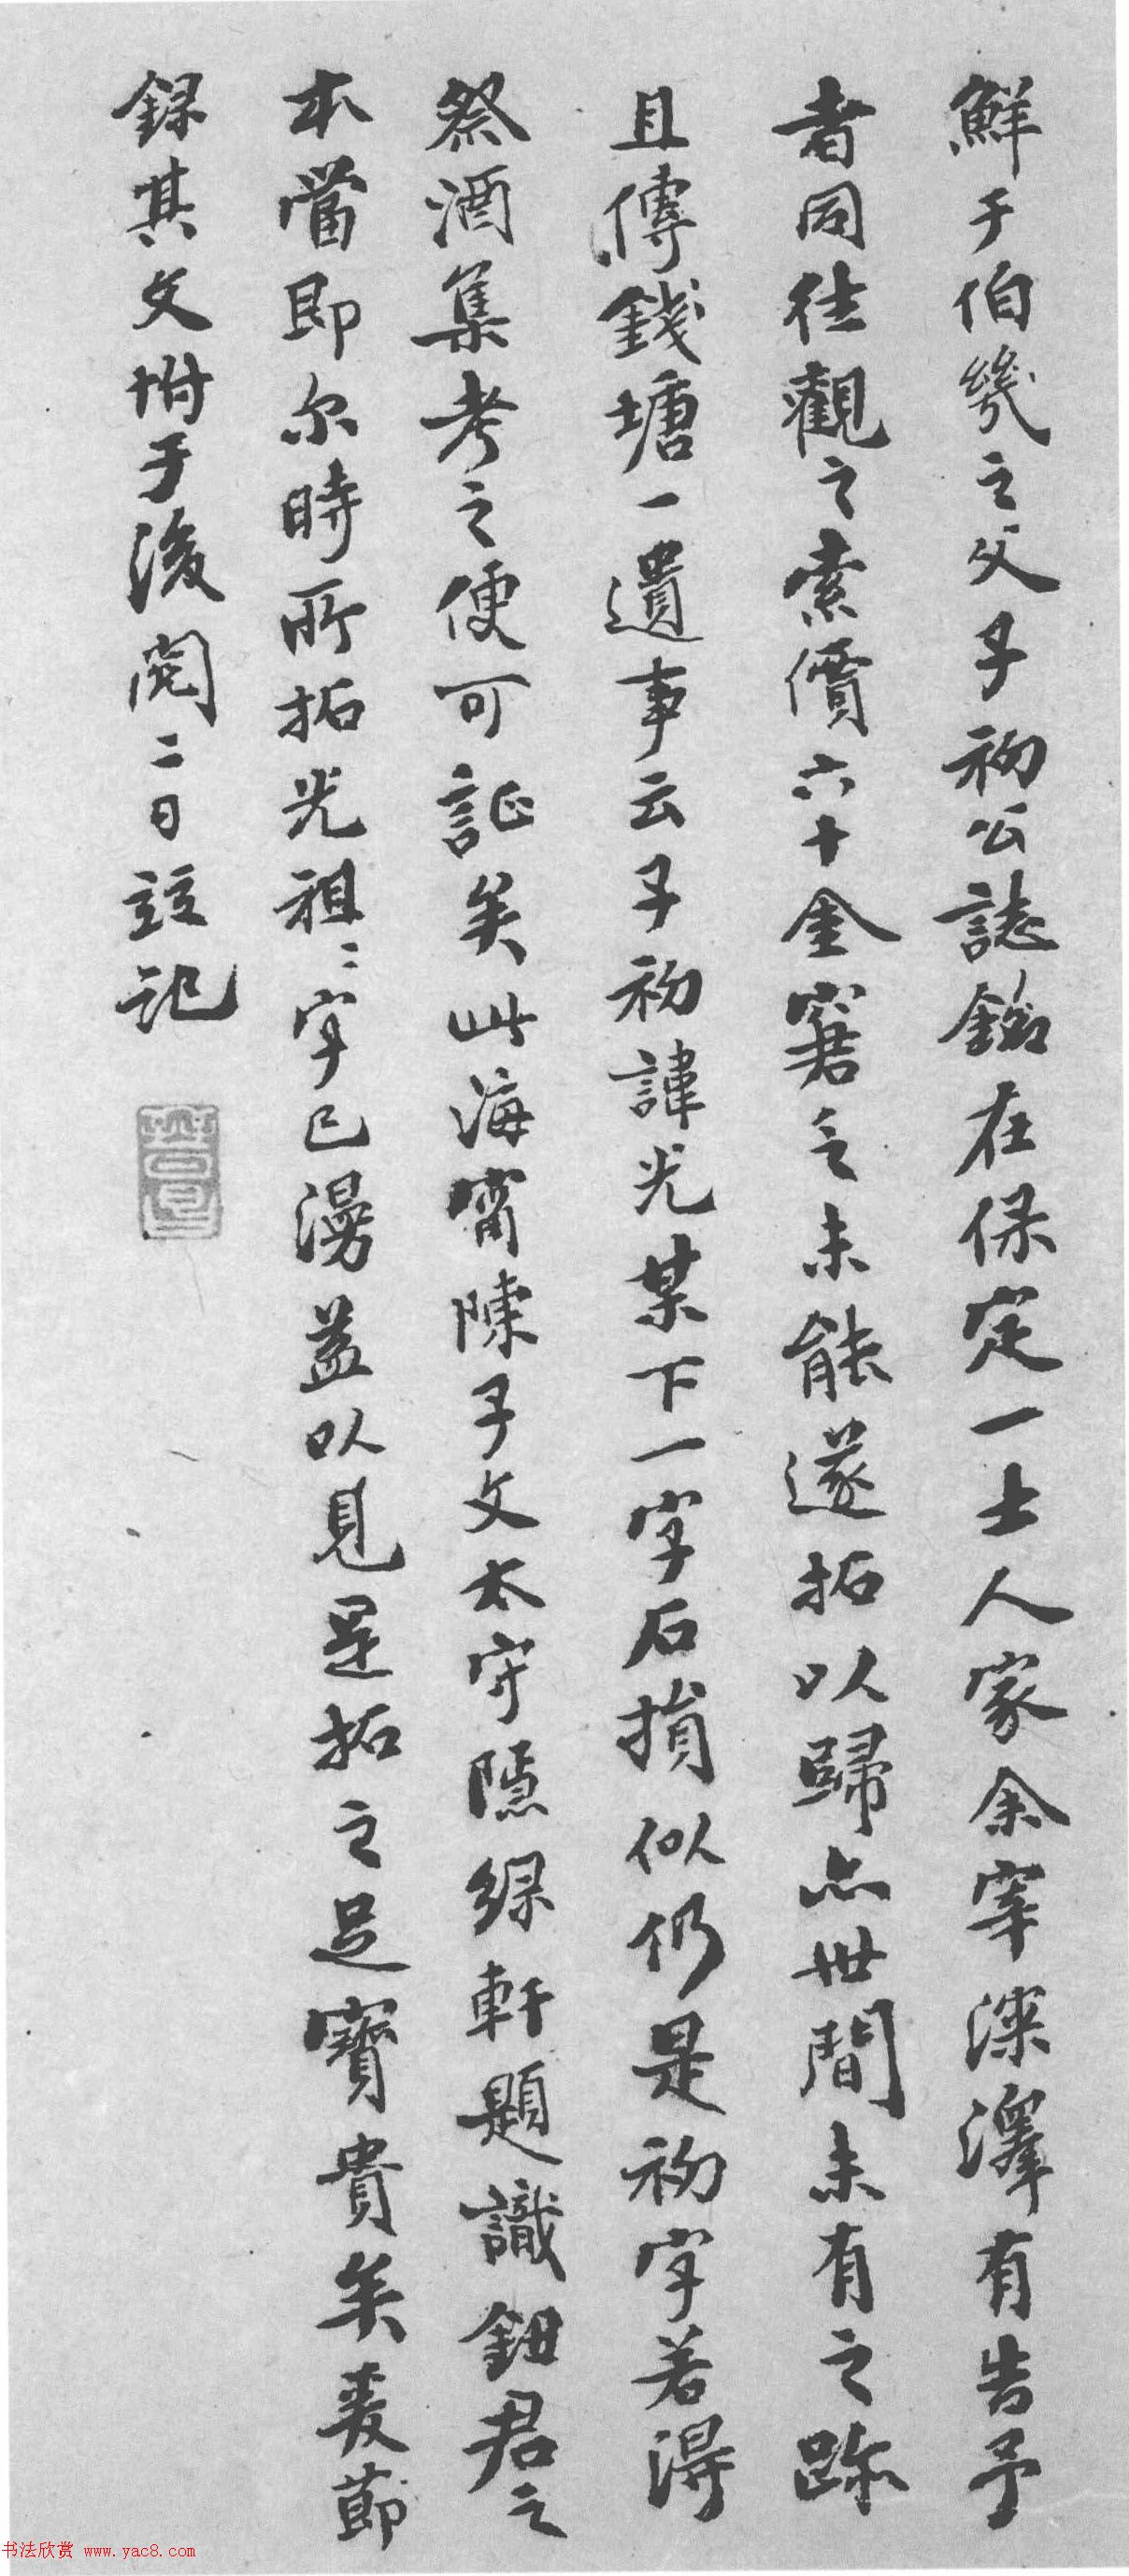 鮮于伯幾之父子初公誌銘在保定一士人家余宰深澤有告予
者同往觀之索價六十金窘之未能遂拓以歸亦世間未有之跡
且傳錢塘一遺事云子初諱光某下一字石損似仍是初字若得
祭酒集考之便可証矣此海甯陳子文太守隱綠軒題識鈕君之
本當即尔時所拓光祖二字已漫益以見是拓之足寶貴矣爰節
錄其文坿于後閏二日竝記
书法欣赏 www.yac8.com